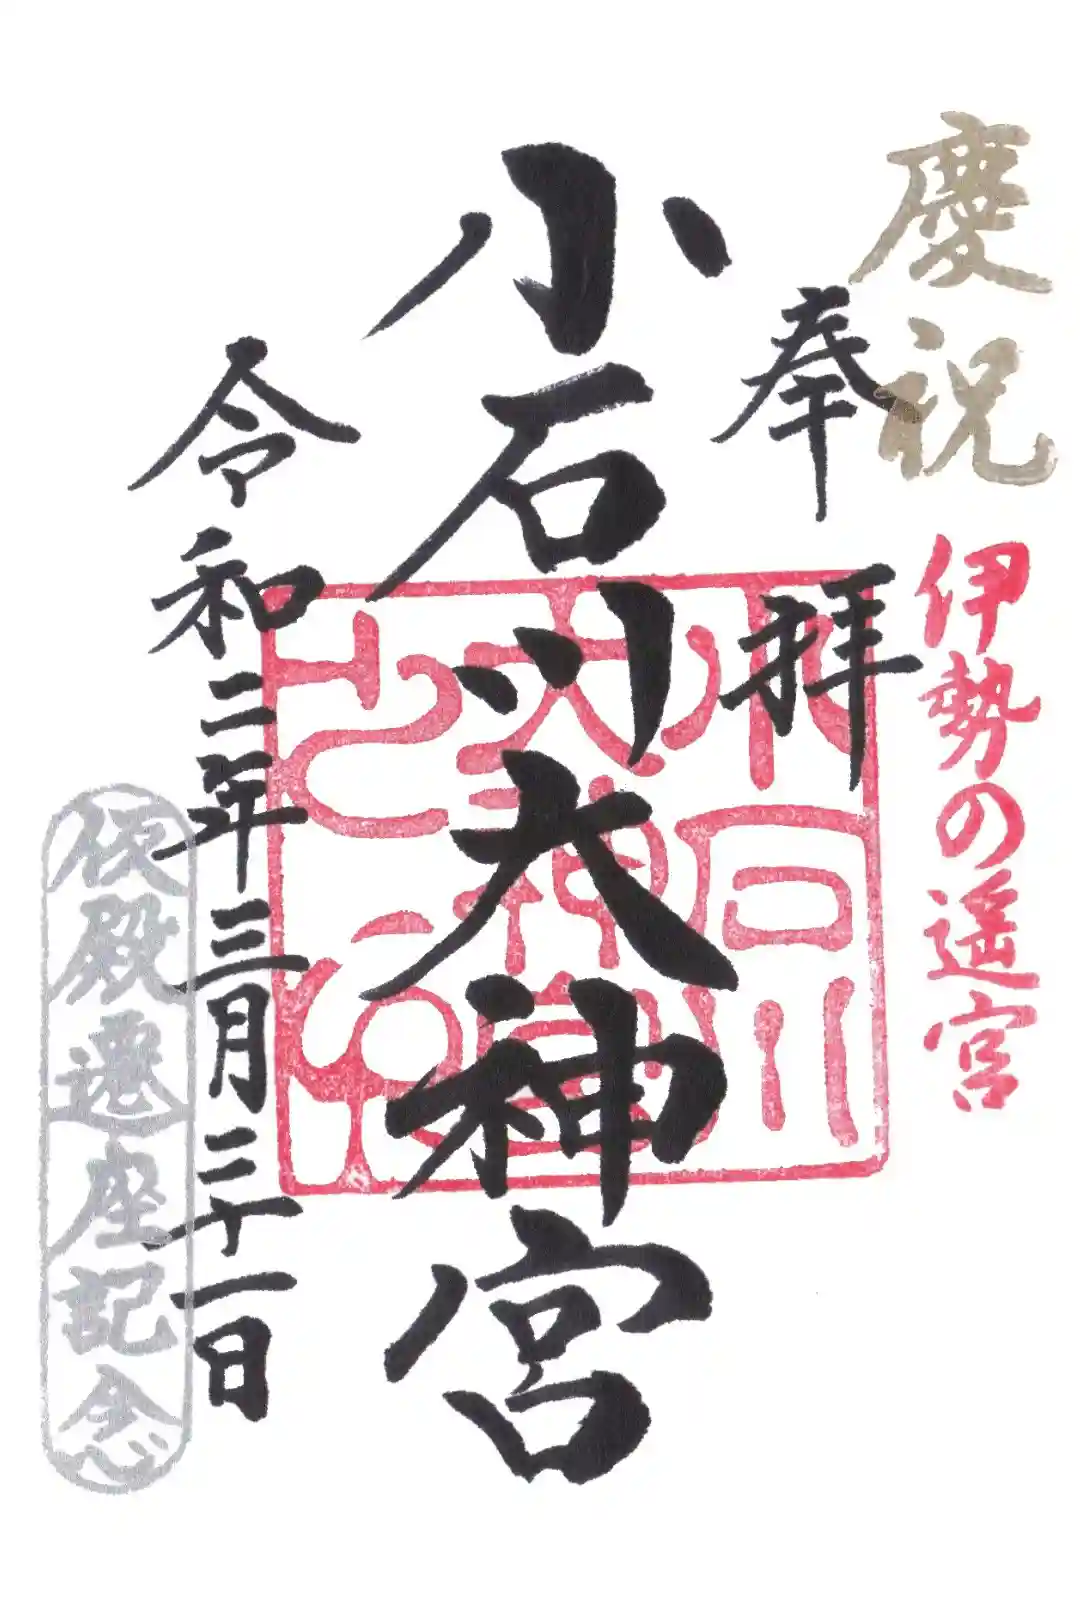 慶祝
伊勢の遥宮
奉拝
小石川大神宮
小石川
大神宮
令和二年三月三十一日
仮殿遷座記念